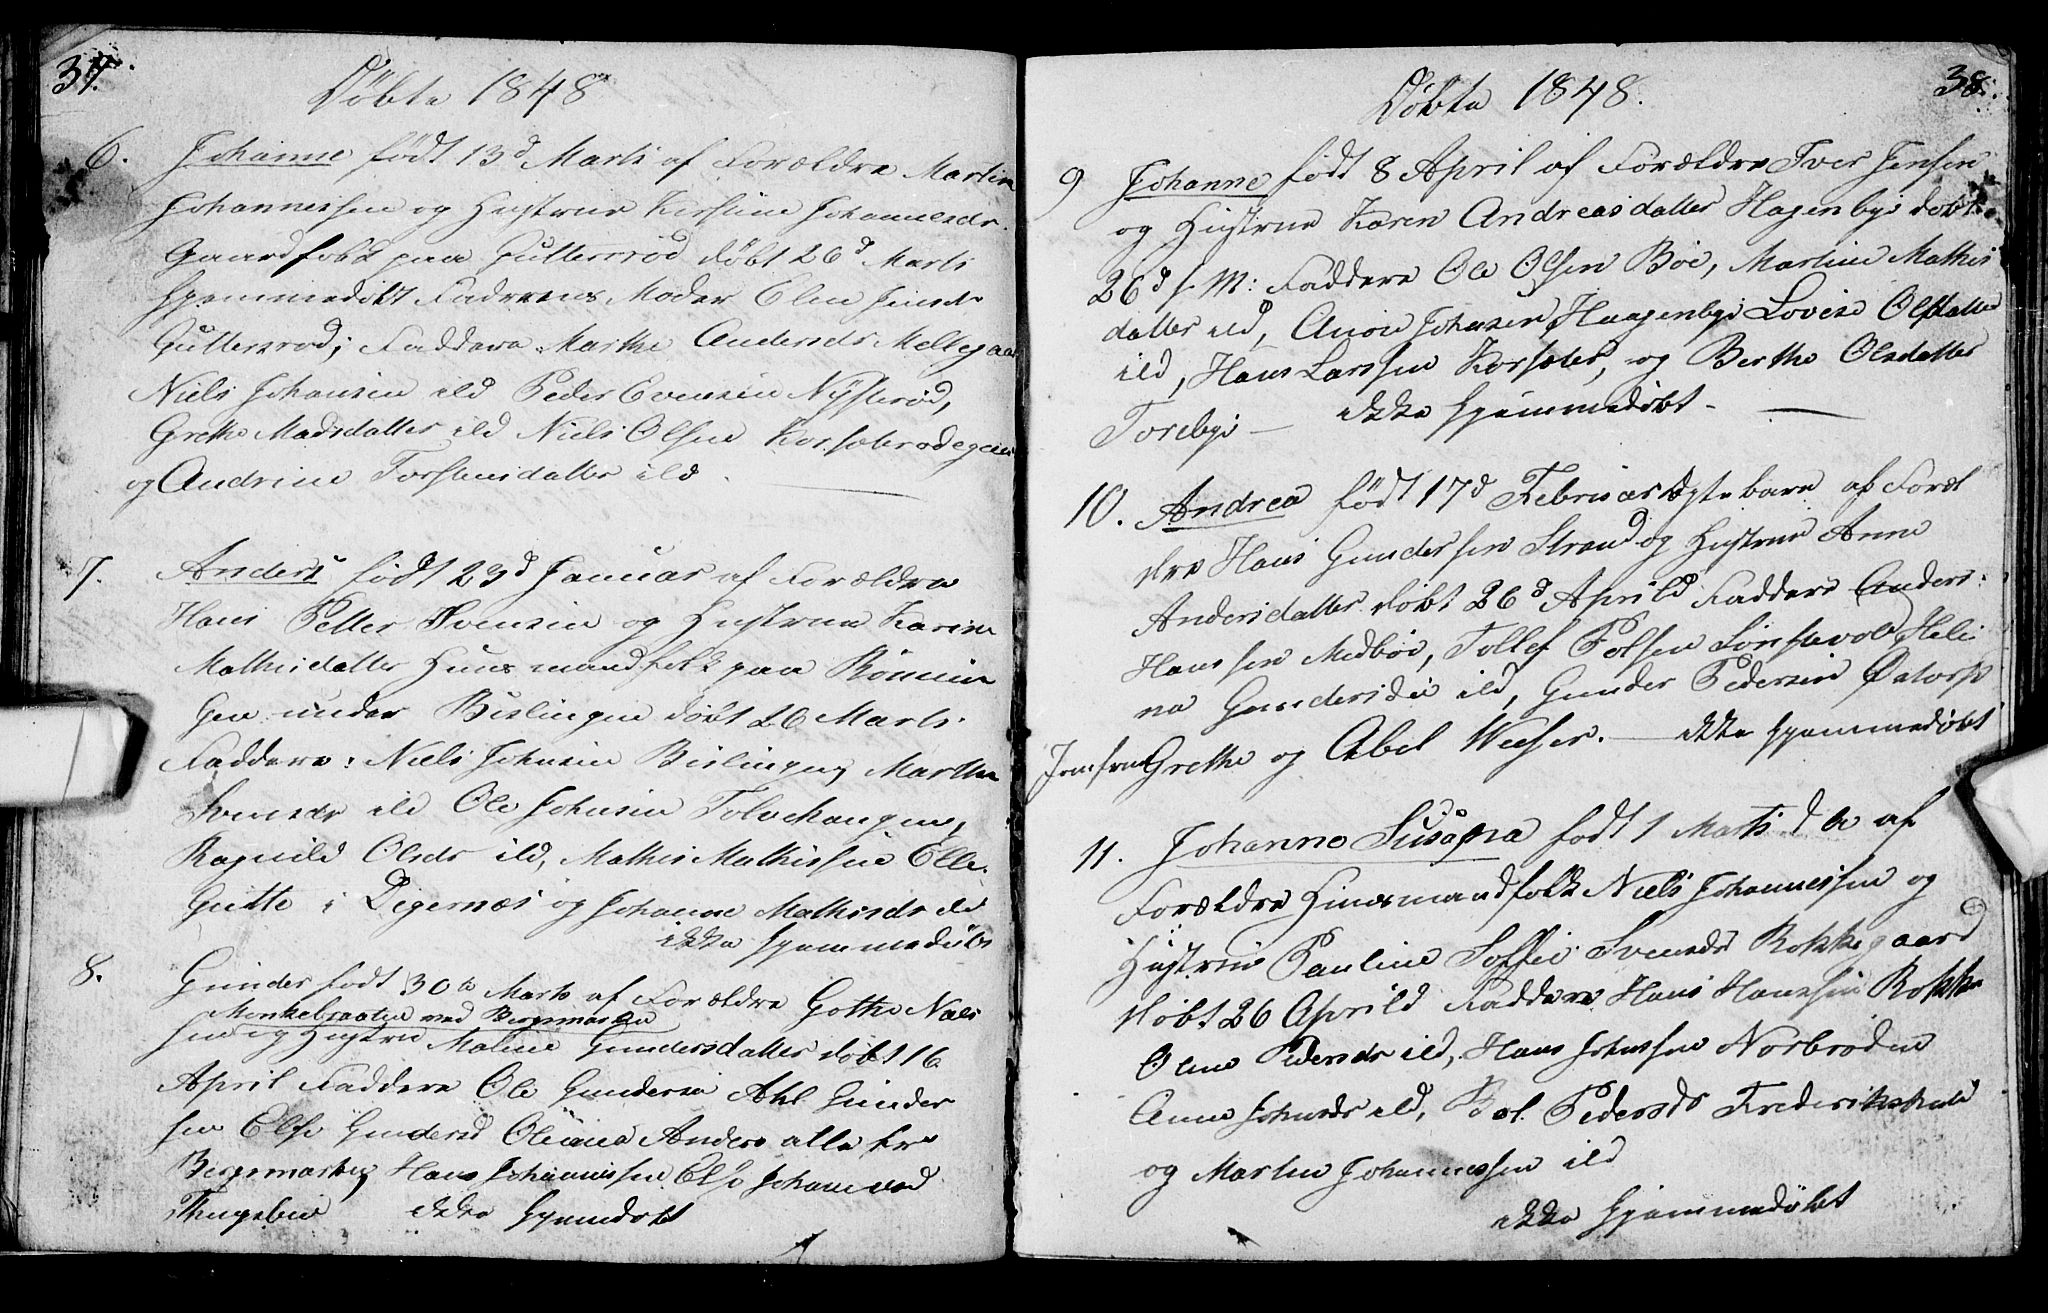 37.
Döbte 1848
6. Johanne födt 13d Marts af Forældre Martin
Johannessen og Hustrue Kirstine Johannesdr.
Gaardfolk paa Guttersröd döbt 26d Marts
hjemmedöbt Fadrens Moder Elen Jensdr
Guttersröd; Faddere Marthe Andersdr Mellegaar
Niels Johansen ild Peder Evensen Nÿseröd,
Grethe Madsdatter ild Niels Olsen Korsæterödegaar
og Andrine Torstensdatter ild.
7. Anders födt 23d Januar af Forældre
Hans Petter Svensen og Hustrue Karine
Mathisdatter Huusmandfolk paa Rönnin
gen under Bislingen döbt 26 Marts
Faddere: Niels Johnsen Bislingen, Marthe
Svensdr ild Ole Johnsen Tolvmangen,
Ragnild Olsdr ild, Mathis Mathissen Elle
Gutte i Degernæs og Johanne Mathisdr ild
ikke hjemmedöbt
8. Gunder födt 30te Marts af Forældre Gothe Niels
Menkebraaten ved Bergsmarken
sen og Hustrue Maline Gundersdatter döbt 16
April Faddere Ole Gundersen Axl Gunder
sen Else Gundersd Oliane Anders alle fra
Bergsmarken, Hans Johannissen Else Johane ved
Thugebie ikke hjemdöbt
38.
Döbte 1848.
9 Johanne födt 8 April af Forældre Iver Jensen
og Hustrue Karen Andreasdatter Hagenbye döbt
26d s. M: Faddere Ole Olsen Böe, Martine Mathis
datter ild, Anon Johnsen Haagenbye Lovise Olsdatter
ild, Hans Larssen Korsæter, og Berthe Olsdatter
Torebye — ikke hjemmedöbt —
10. Andrea födt 17d Februar ægtebarn af Foræl
dre Hans Gundersen Strand og Hustrue Anne
Andersdatter döbt 26d Aprild Faddere Anders
Hanssen Medböe, Tollef Polsen Sönstevold, Heli
na Gundersdr ild, Gunder Pedersen Östorp
Jomfrue Grethe og Abel Weser. — ikke hjemmedöbt
11. Johanne Susana födt 1 Marts d A af
Forældre Huusmandfolk Niels Johannessen og
Hustrue Pauline Soffie Svensdr Rokkegaard
döbt 26 Aprild Faddere Hans Hanssen Rokke
Oline Pedersdr ild, Hans Johnssen Norbröden
Anne Johnsdr ild, Bol. Pedersdr Frederikshald
og Marten Johannessen ild
ikke hjemmedöbt